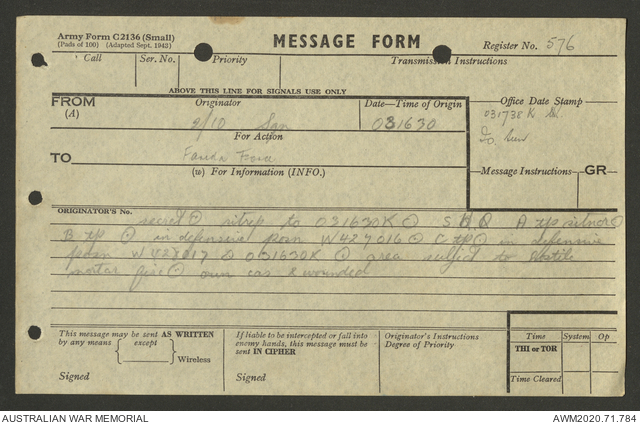 Army Form C2136 (Small)
(Pads of 100) (Adapted Sept. 1943)
MESSAGE FORM
Register No. 576
Call Ser. No. Priority Transmission Instructions
ABOVE THIS LINE FOR SIGNALS USE ONLY
FROM
(A)
Originator
9/10 Sqn
Date—Time of Origin
031630
Office Date Stamp
031738K
For Action
TO
Farida Force
(w) For Information (INFO.)
Message Instructions GR
ORIGINATOR'S No.
secret ⊙ sitrep to 031630K ⊙ A tp
B tp ⊙ in defensive posn W427016 ⊙ C tp ⊙ in defensive
posn W427017 031630K ⊙ area subject to hostile
mortar fire ⊙ own cas 2 wounded
This message may be sent AS WRITTEN
by any means except
Wireless
Signed
If liable to be intercepted or fall into
enemy hands, this message must be
sent IN CIPHER
Signed
Originator's Instructions
Degree of Priority
Time System Op
THI or TOR
Time Cleared
AUSTRALIAN WAR MEMORIAL
AWM2020.71.784